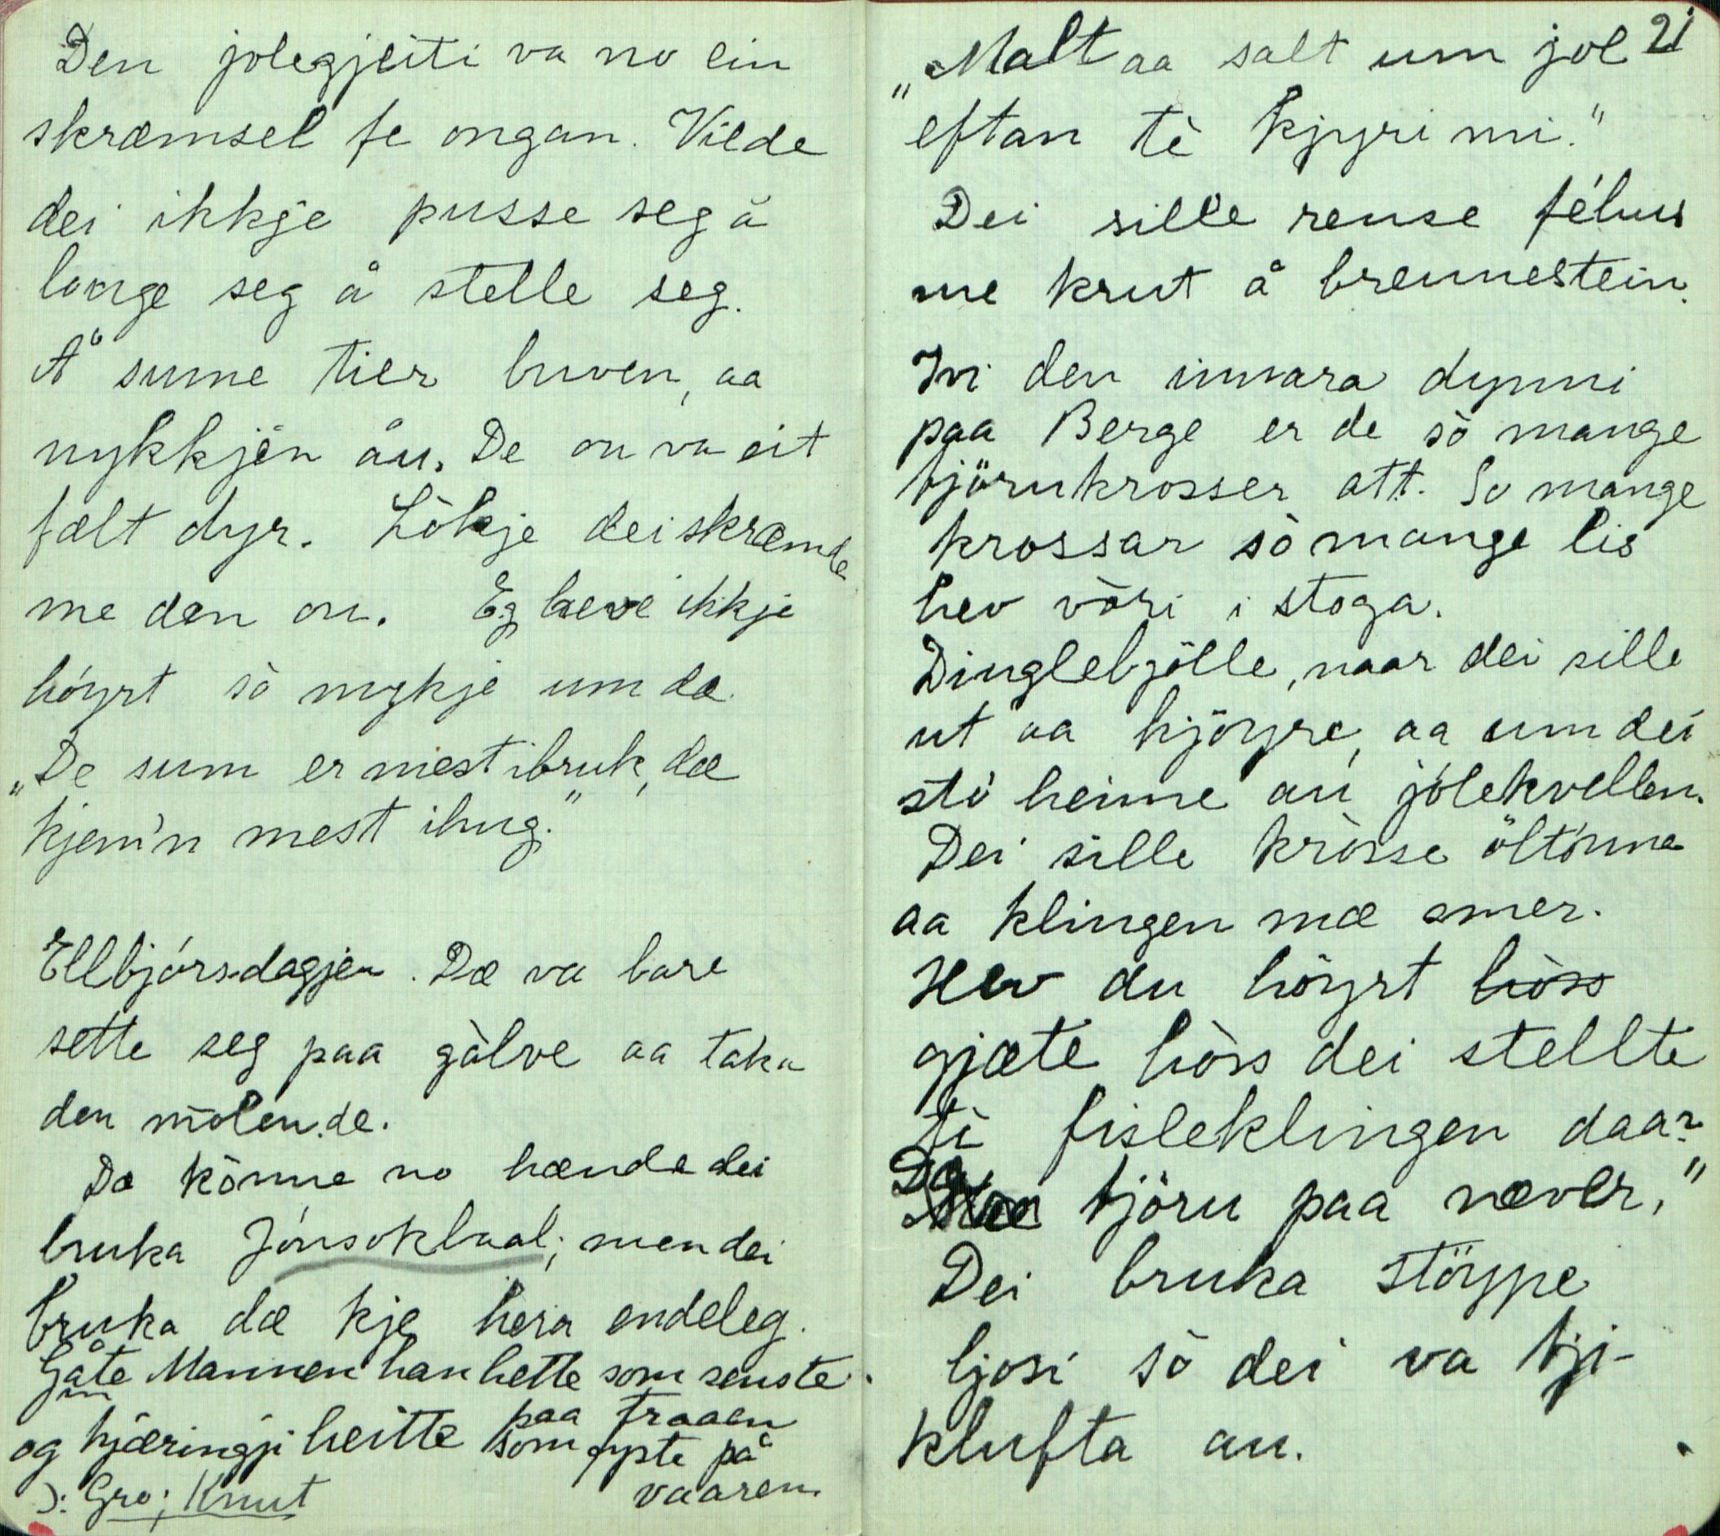 Den jolegjeiti va no ein
skræmsel fe ongan. Vilde
dei ikkje pusse seg å
longe seg å stelle seg.
Å sume tier buven, aa
nykkjèn åu. De ou va eit
fælt dyr. Lökje dei skræmde
me den ou. Eg heve ikkje
höyrt sò mykje um dæ.
„De sum er mest i bruk, dæ
kjem'n mest ihug."
Ellbjórsdagjen. Dæ va bare
sette seg paa gòlve aa taka
den mólen. de.
Dæ kònne no hænde dei
bruka Jónsokbaal; men dei
bruka dæ kje hera endeleg.
Gåte Mannen han hette som senste
in paa traaen
og kjæringji heitte som gyste på
vaaren.
ɔ: Gro; Knut
21
„Malt aa salt um jol
eftan tè kjyri mi."
Dei sille rense féhus
me krut å brennestein.
Ivi den innara dynni
paa Berge er de sò mange
tjörukrosser att. So mange
krossar sò mange lis
hev vòri i stoga.
Dinglebjölle, naar dei sille
ut aa kjöyre, aa um dei
sto heime au jólekvellen.
Dei sille kròsse öltònna
aa klingen mæ smer.
Hev du höyrt hòss
gjæte hòss dei stellte
ti fisleklingen daa?
Dæ tjöru paa næver,"
Dei bruka stöype
ljosi sò dei va tji-
klufta au.